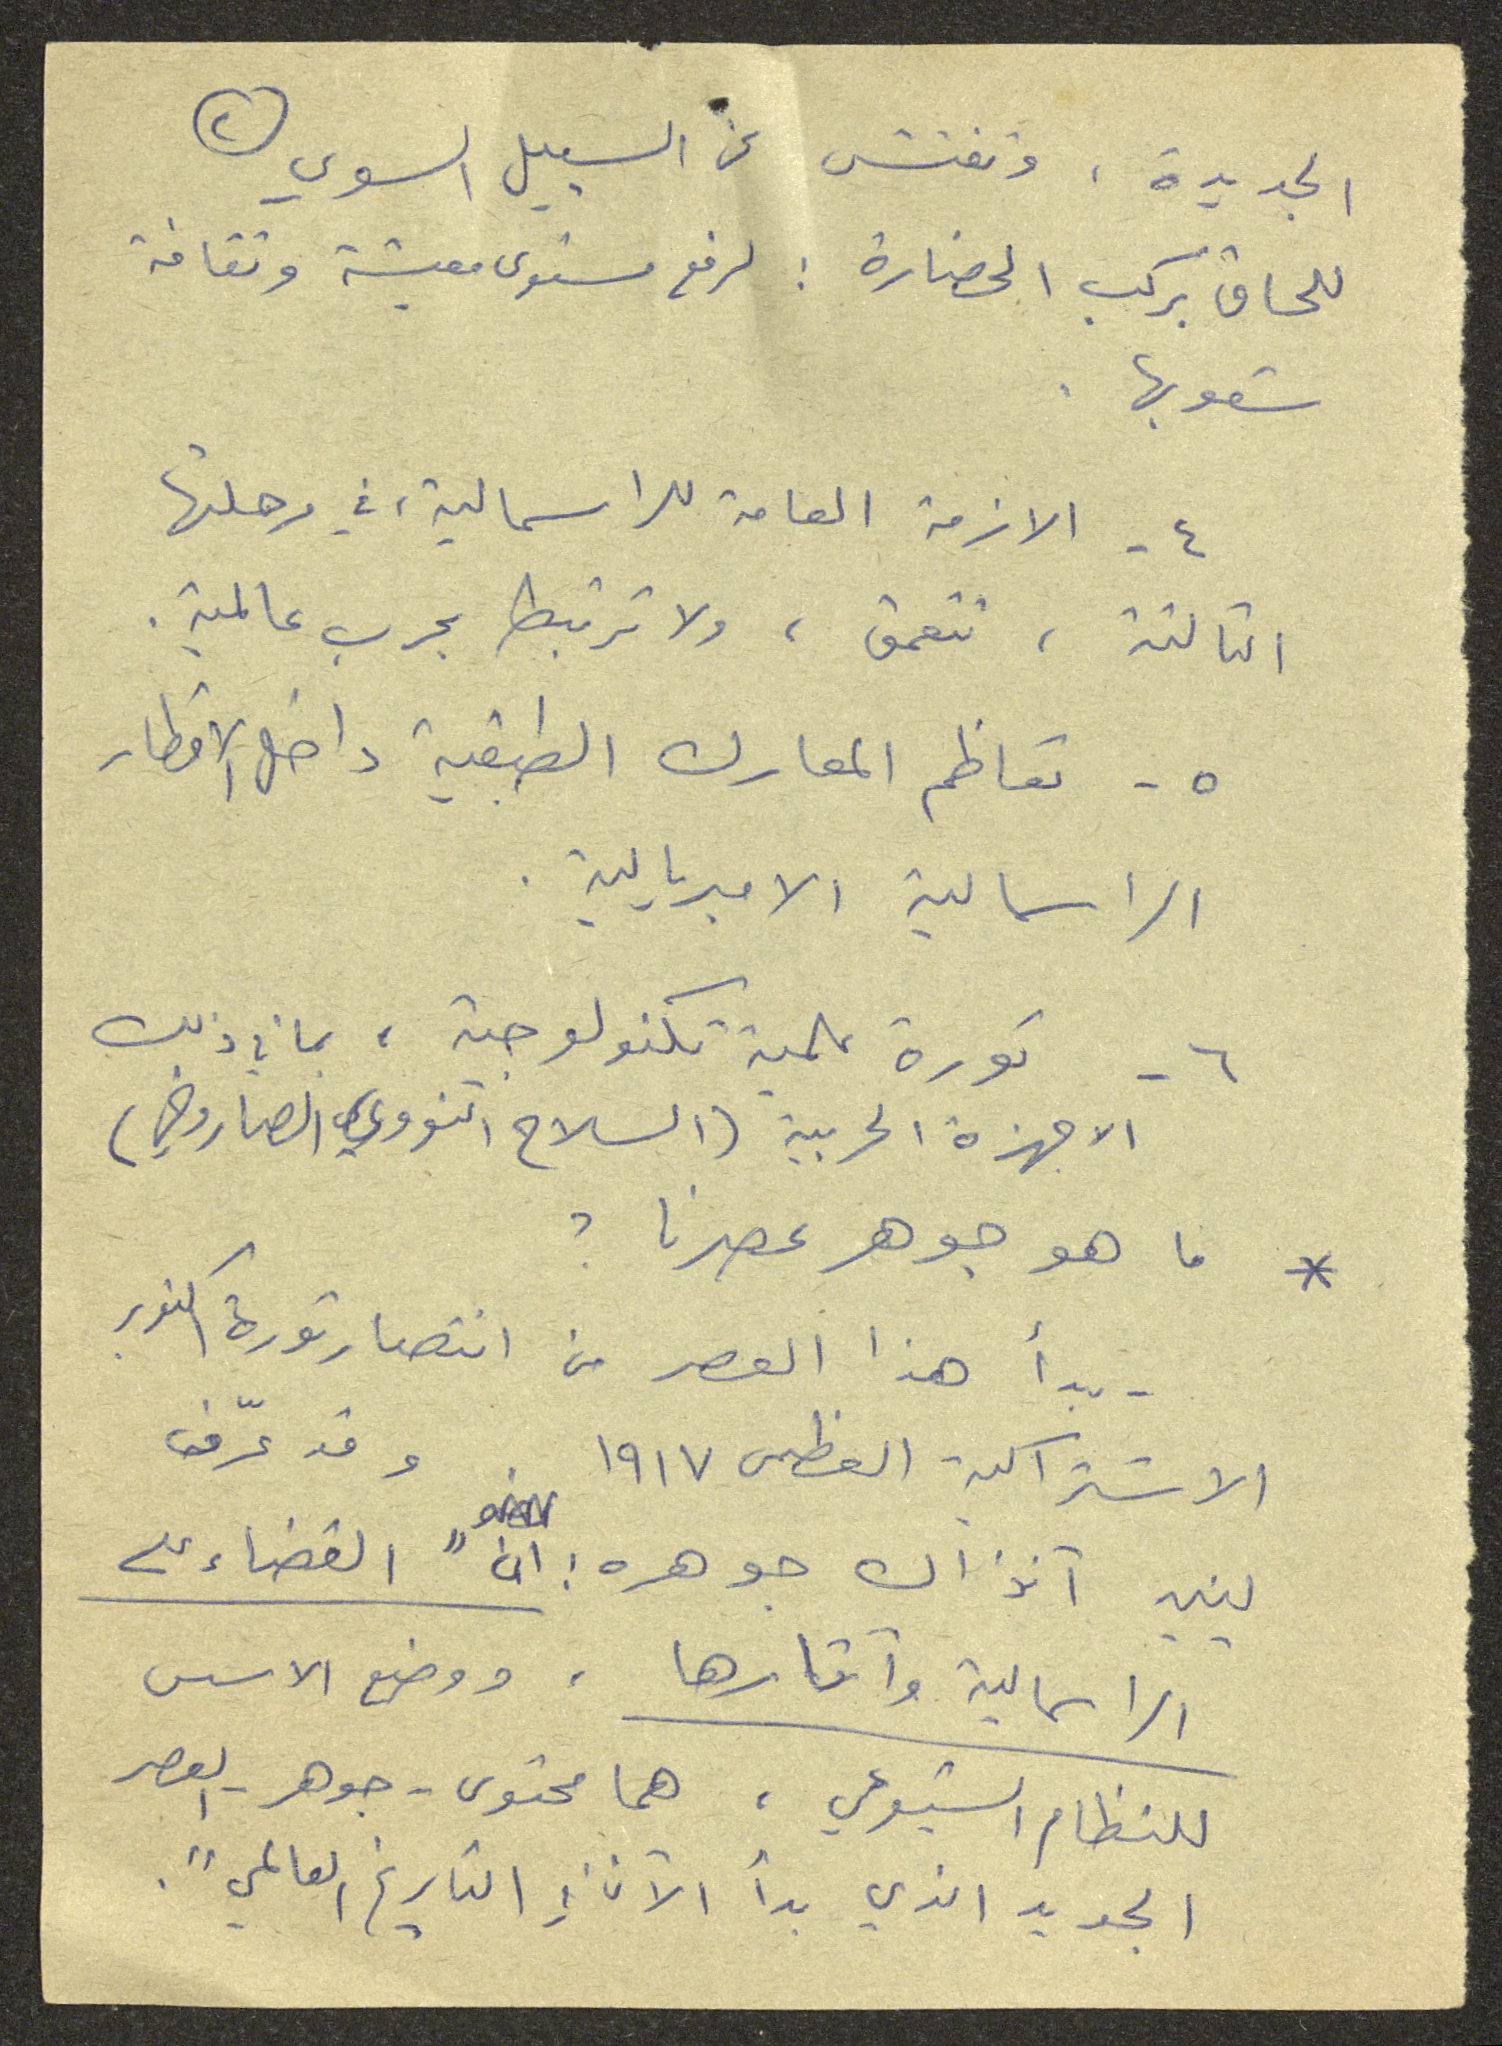 ٢
الجديدة، وتفتش عن السبيل السوي
للحاق بركب الحضارة: لرفع مستوى معيشة وثقافة
شعوبها.
٤ - الازمة العامة للراسمالية، في مرحلتها
الثالثة، تتعمق، ولا ترتبط بحرب عالمية.
٥ - تعاظم المعارك الطبقية داخل الاقطار
الراسمالية الامبريالية.
٦ - ثورة علمية تكنولوجية، بما في ذلك
الاجهزة الحربية (السلاح النووي الصاروخي)
* ما هو جوهر عصرنا؟
- يبدأ هذا العصر من انتصار ثورة اكتوبر
الاشتراكية العظمى ١٩١٧. وقد عرّف
لينين آنذاك جوهره: ان "القضاء على
الراسمالية وآثارها، ووضع الاسس
للنظام الشيوعي، هما محتوى - جوهر - العصر
الجديد الذي بدأ الآن في التاريخ العالمي".